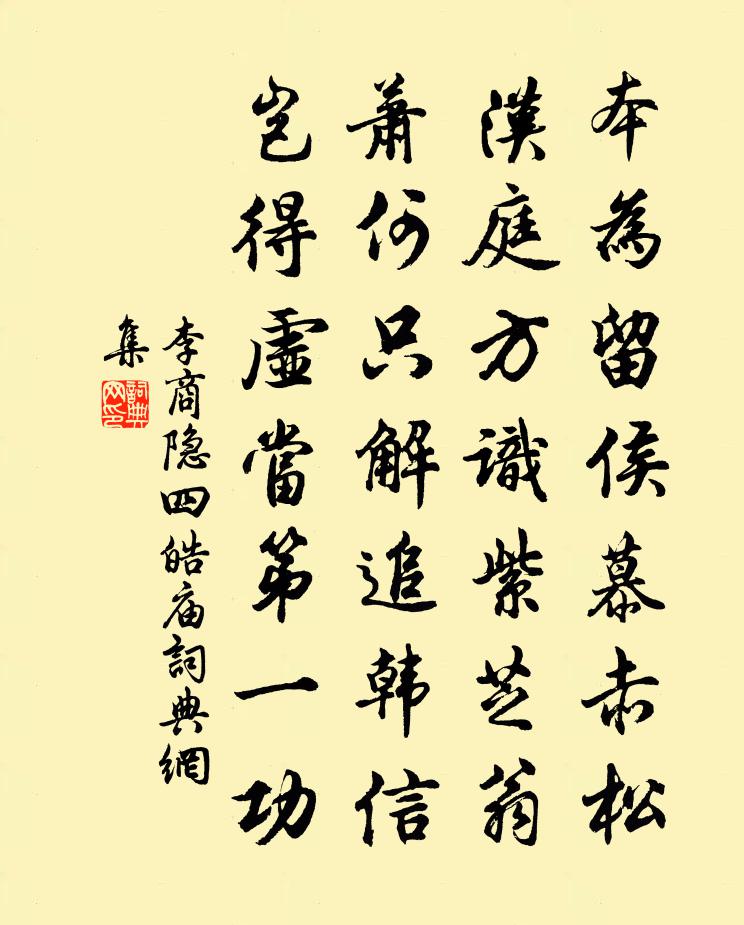 本為留侯慕赤松
漢庭方識紫芝翁
蕭何只解追韩信
豈得虛當第一功
李商隐四皓庙詞典網
集
詞典网印